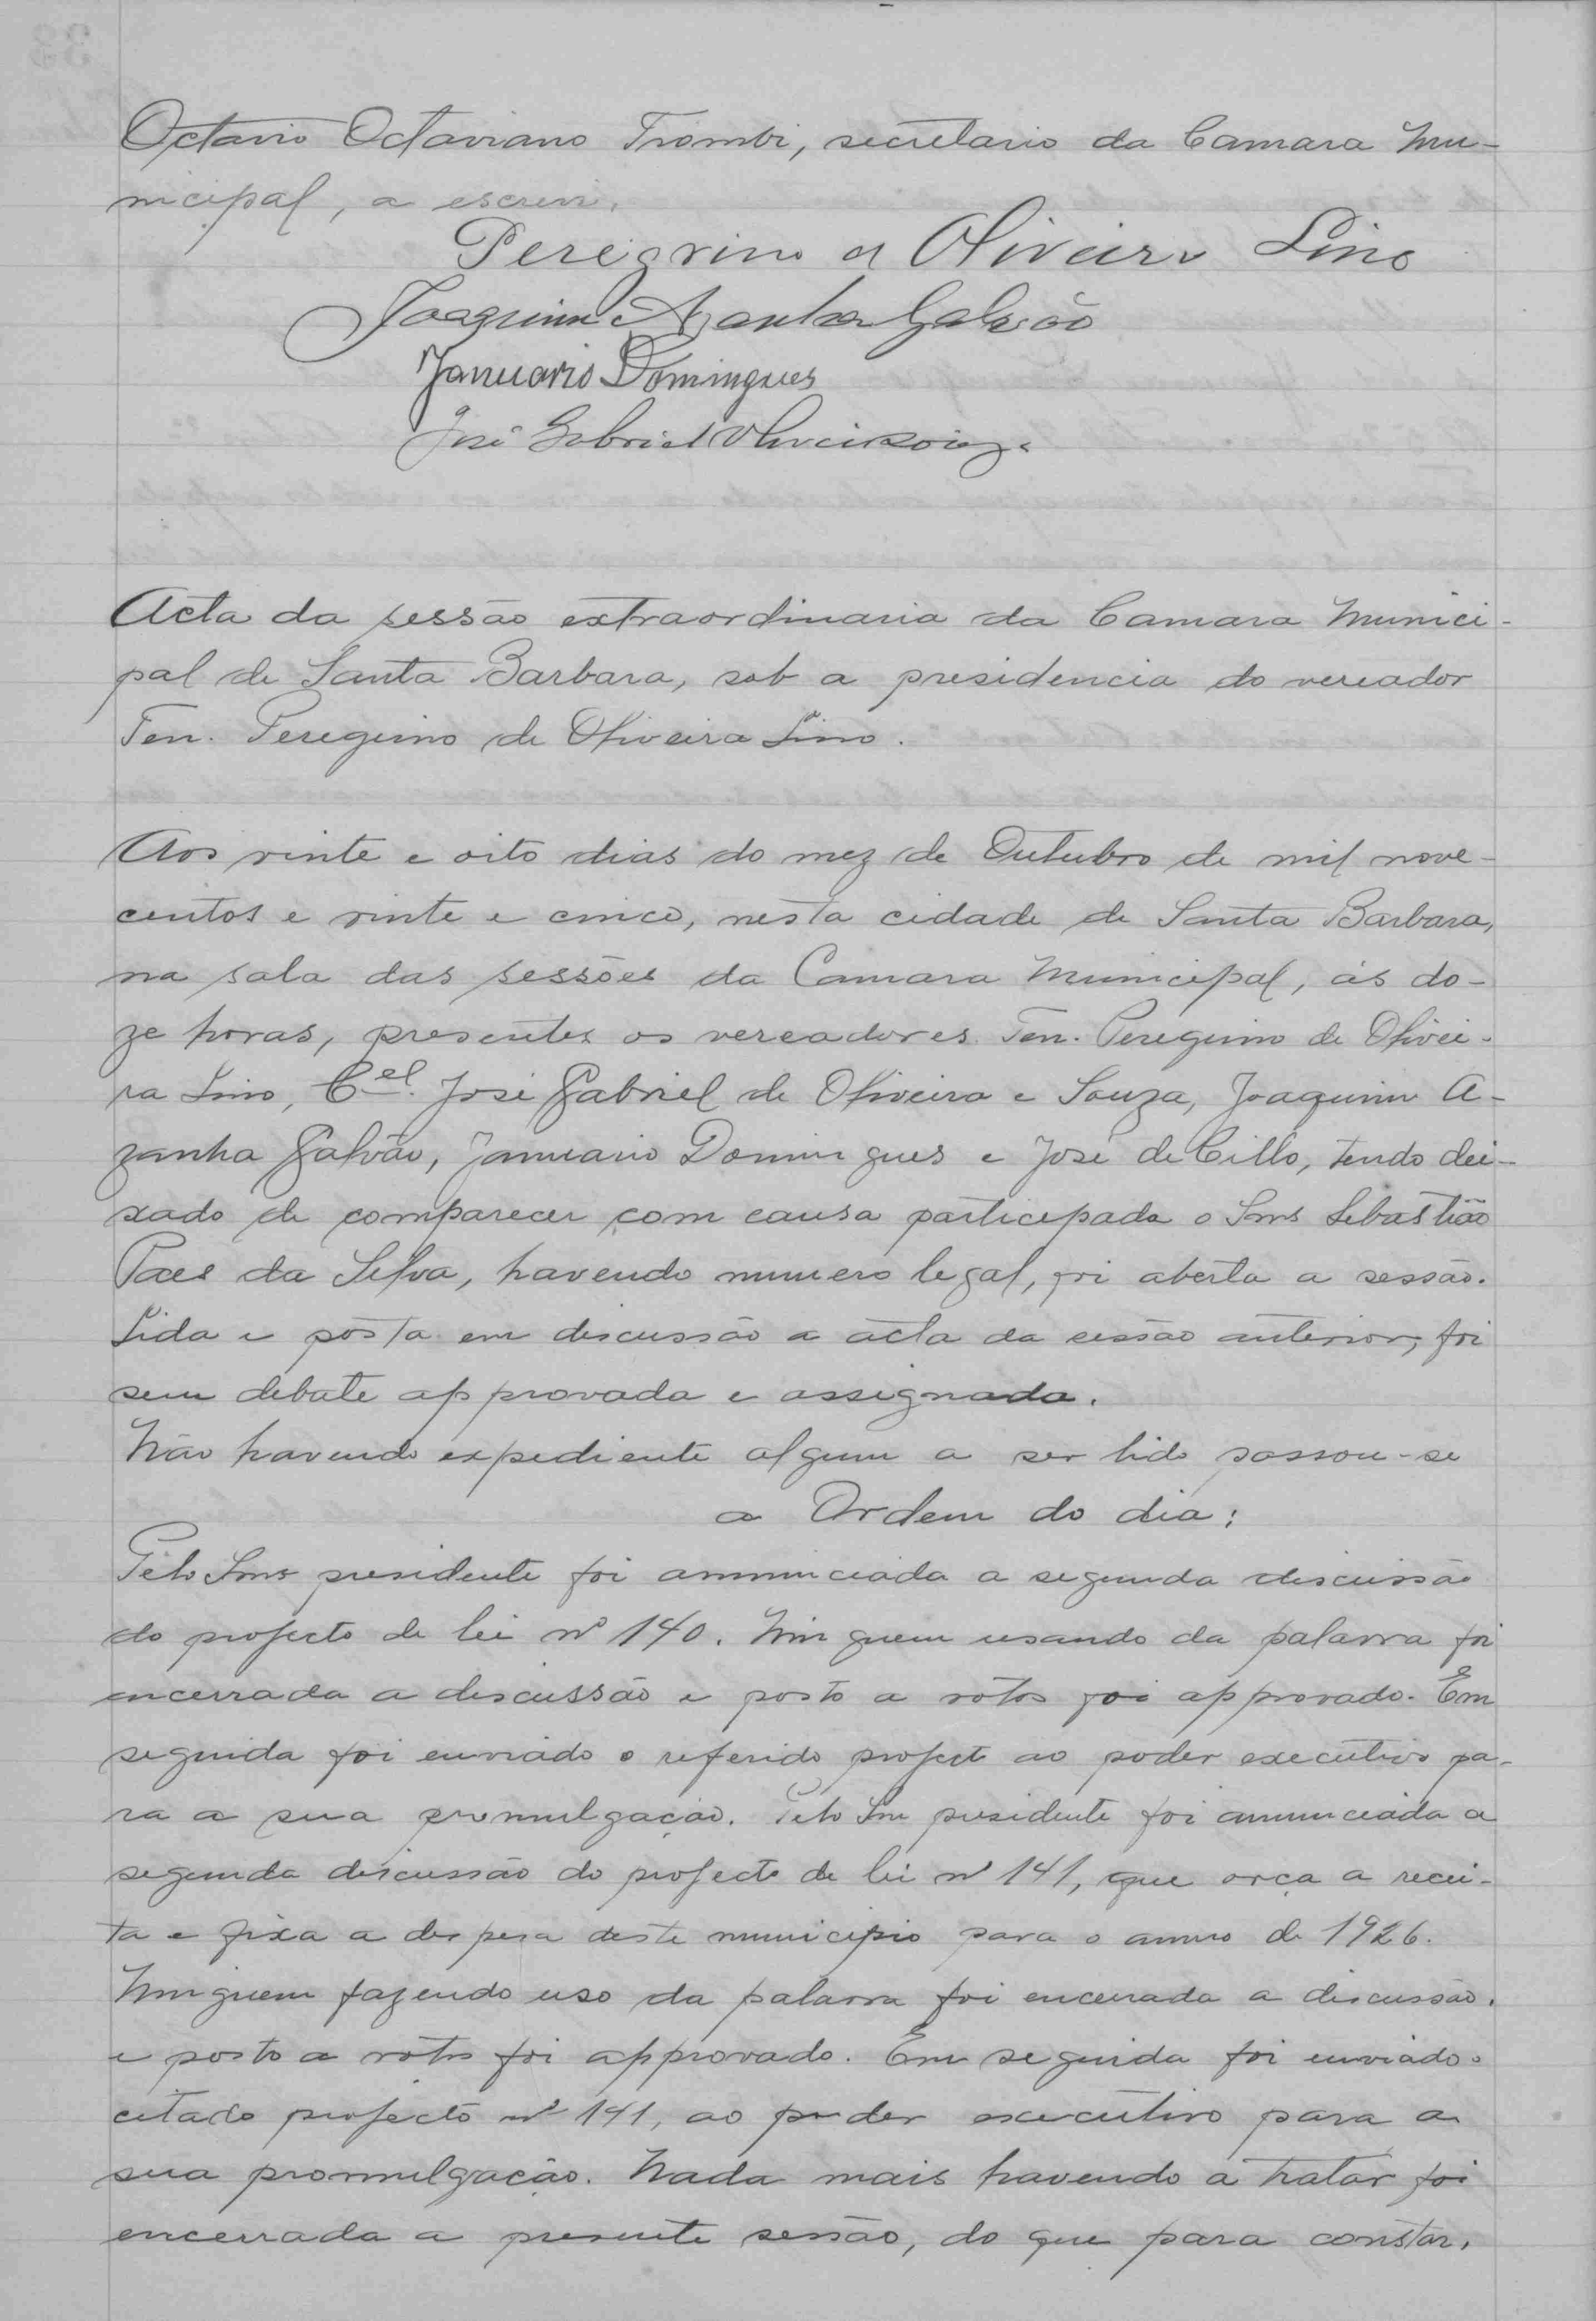 Octavio Octaviano Trombi, secretario da Camara Mu-
nicipal, a escrevi.
Peregrino d Oliveira Lino
Joaquim Azanha Galvão
Januario Domingues
José Gabriel Oliveira
Acta da sessão extraordinaria da Camara Munici-
pal de Santa Barbara, sob a presidencia do vereador
Ten. Peregrino de Oliveira Lino.
Aos vinte e oito dias do mez de Outubro de mil nove-
centos e vinte e cinco, nesta cidade de Santa Barbara,
na sala das sessões da Camara Municipal, ás do-
ze horas, presentes os vereadores Ten. Peregrino de Olivei-
ra Lino, Cel. José Gabriel de Oliveira e Souza, Joaquim A-
zanha Galvão, Januario Domingues e José de Cillo, tendo dei-
xado de comparecer com causa participada o Snr Sebastião
Paes da Silva, havendo numero legal, foi aberta a sessão.
Lida e posta em discussão a acta da sessão anterior, foi
sem debate approvada e assignada.
Não havendo expediente algum a ser lido passou-se
a Ordem do dia:
Pelo Snr presidente foi annunciada a segunda discussão
do projecto de lei nº 140. Ninguem usando da palavra foi
encerrada a discussão e posto a votos foi approvado. Em
seguida foi enviado o referido project ao poder executivo pa-
ra a sua promulgação. Pelo Snr presidente foi annunciada a
segunda discussão do projecto de lei nº 141, que orça a recei-
ta e fixa a despesa deste municipio para o anno de 1926.
Ninguem fazendo uso da palavra foi encerrada a discussão.
e posto a votos foi approvado. Em seguida foi enviado o
citado projecto nº 141, ao poder executivo para a
sua promulgação. Nada mais havendo a tratar foi
encerrada a presente sessão, do que para constar,